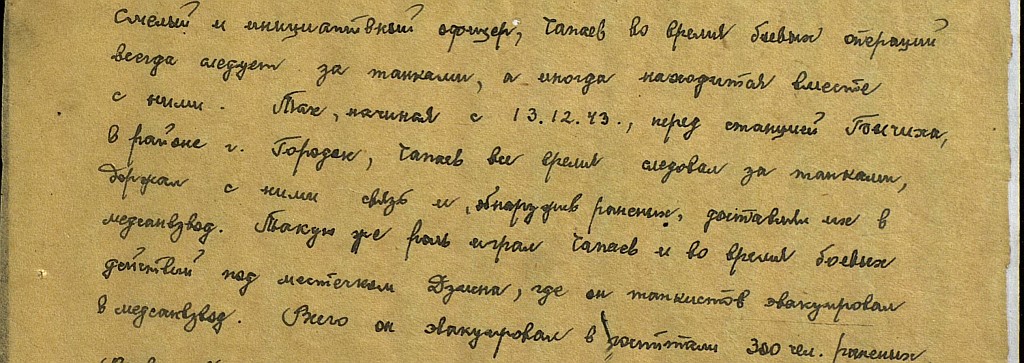 Смелый и инициативный офицер, Чапаев во время боевых операций
всегда следует за танками, а иногда находится вместе
с ними. Так, начиная с 13.12.43., перед станцией
в районе г. Городок, Чапаев все время следовал за танками,
держал с ними связь и, обнаружив раненых, доставлял их в
медсанвзвод. Такую же роль играл Чапаев и во время боевых
действий под местечком где он танкистов эвакуировал
в медсанвзвод. Всего он эвакуировал в госпитали 300 чел. раненых